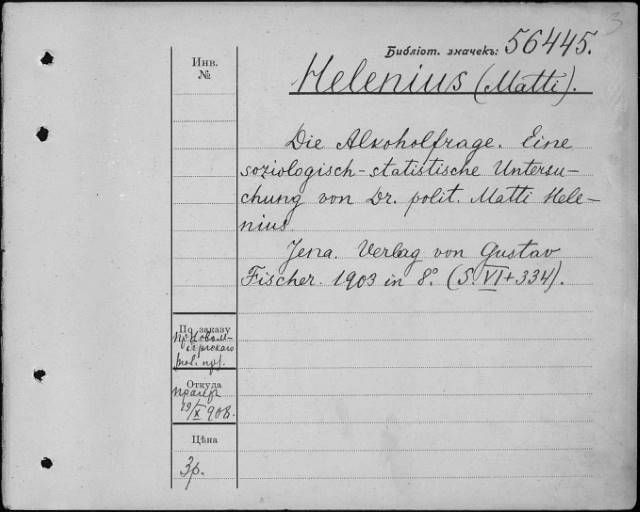 3
Библіот. значекъ: 56445.
Инв.
№
Helenius (Matti).
Die Alkoholfrage. Eine
soziologisch-statistische Untersu-
chung von Dr. polit. Matti Hele-
nius.
Jena. Verlag von Gustav
Fischer. 1903 in 8°. (S. VI+334).
По заказу
Откуда
29/X 908.
Цѣна
3р.